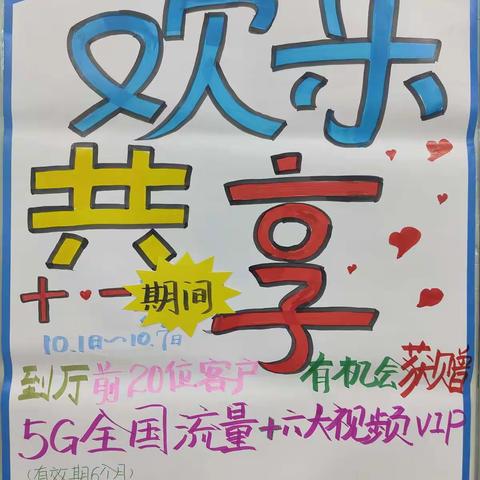 欢乐
共享
十一期间
10.1日~10.7日
到厅前20位客户有机会获赠
5G全国流量+六大视频VIP
(有效期6个月)